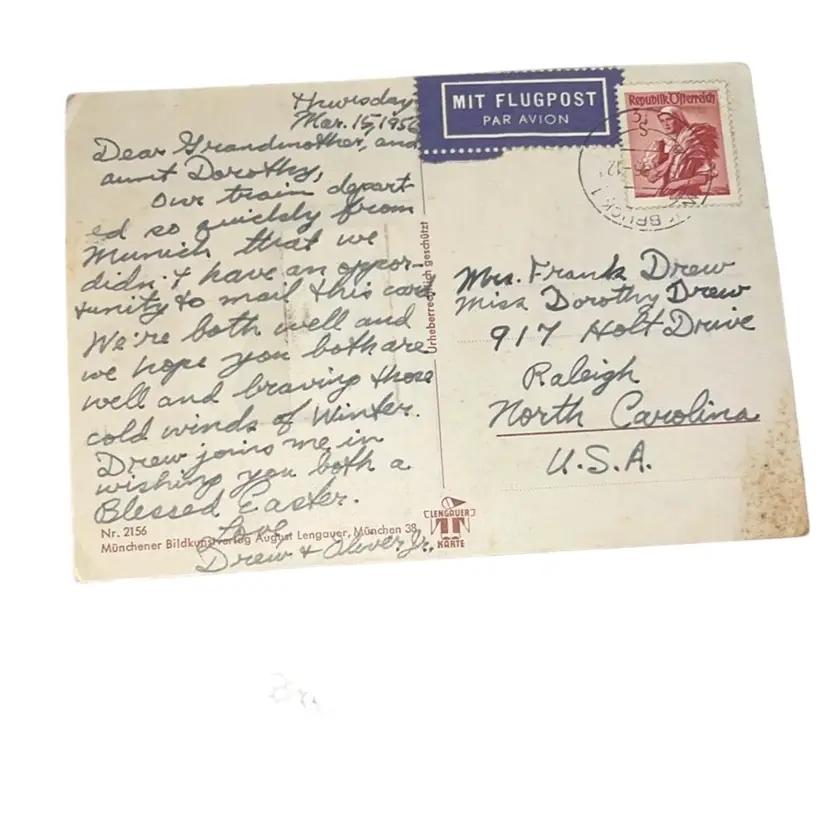 Thursday
Mar. 15, 1956
Dear Grandmother, and
aunt Dorothy,
Our train depart
ed so quickly from
Munich that we
didn't have an oppor-
tunity to mail this card
We're both well and
we hope you both are
well and braving those
cold winds of Winter.
Drew joins me in
wishing you both a
Blessed Easter.
Love,
Drew & Oliver Jr.
Nr. 2156
Münchener Bildkunstverlag August Lengauer, München 38
Urheberrechtlich geschützt
LENGAUER
KARTE
MIT FLUGPOST
PAR AVION
Republik Österreich
S
Mrs. Frank Drew
Miss Dorothy Drew
917 Holt Drive
Raleigh
North Carolina
U.S.A.